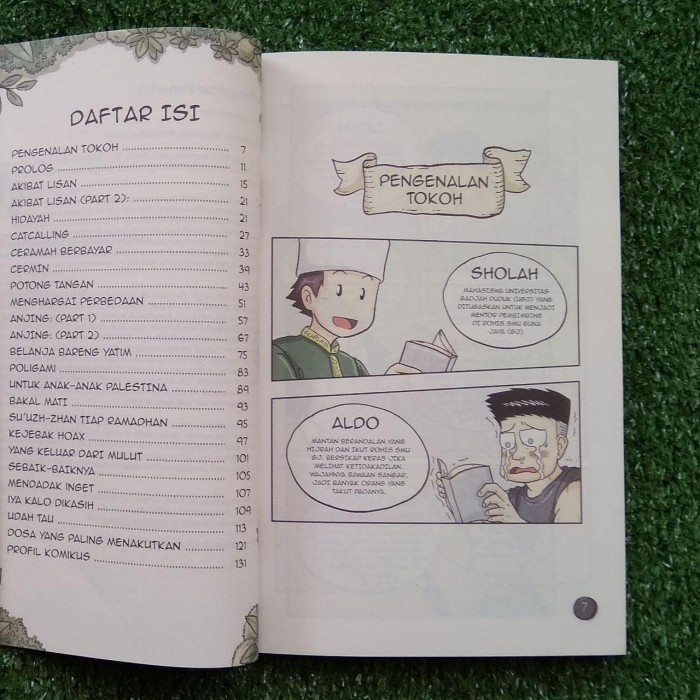 DAFTAR ISI
PENGENALAN TOKOH 7
PROLOG 11
AKIBAT LISAN 15
AKIBAT LISAN (PART 2): 21
HIDAYAH 21
CATCALLING 27
CERAMAH BERBAYAR 33
CERMIN 39
POTONG TANGAN 43
MENGHARGAI PERBEDAAN 51
ANJING: (PART 1) 57
ANJING: (PART 2) 67
BELANJA BARENG YATIM 75
POLIGAMI 83
UNTUK ANAK-ANAK PALESTINA 89
BAKAL MATI 93
SU'UZH-ZHAN TIAP RAMADHAN 95
KEJEBAK HOAX 97
YANG KELUAR DARI MULUT 101
SEBAIK-BAIKNYA 105
MENDADAK INGET 107
IYA KALO DIKASIH 109
UDAH TAU 113
DOSA YANG PALING MENAKUTKAN 121
PROFIL KOMIKUS 131
PENGENALAN
TOKOH
SHOLAH
MAHASISWA UNIVERSITAS
GADJAH DUDUK (UGD) YANG
DITUGASKAN UNTUK MENJADI
MENTOR PEMBIMBING
DI ROHIS SMU GUNA
JAYA (GJ)
ALDO
MANTAN BERANDALAN YANG
HIJRAH DAN IKUT ROHIS SMU
GJ. BERSIKAP KERAS JIKA
MELIHAT KETIDAKADILAN.
WAJAHNYA BAWAAN SANGAR,
JADI BANYAK ORANG YANG
TAKUT PADANYA.
7